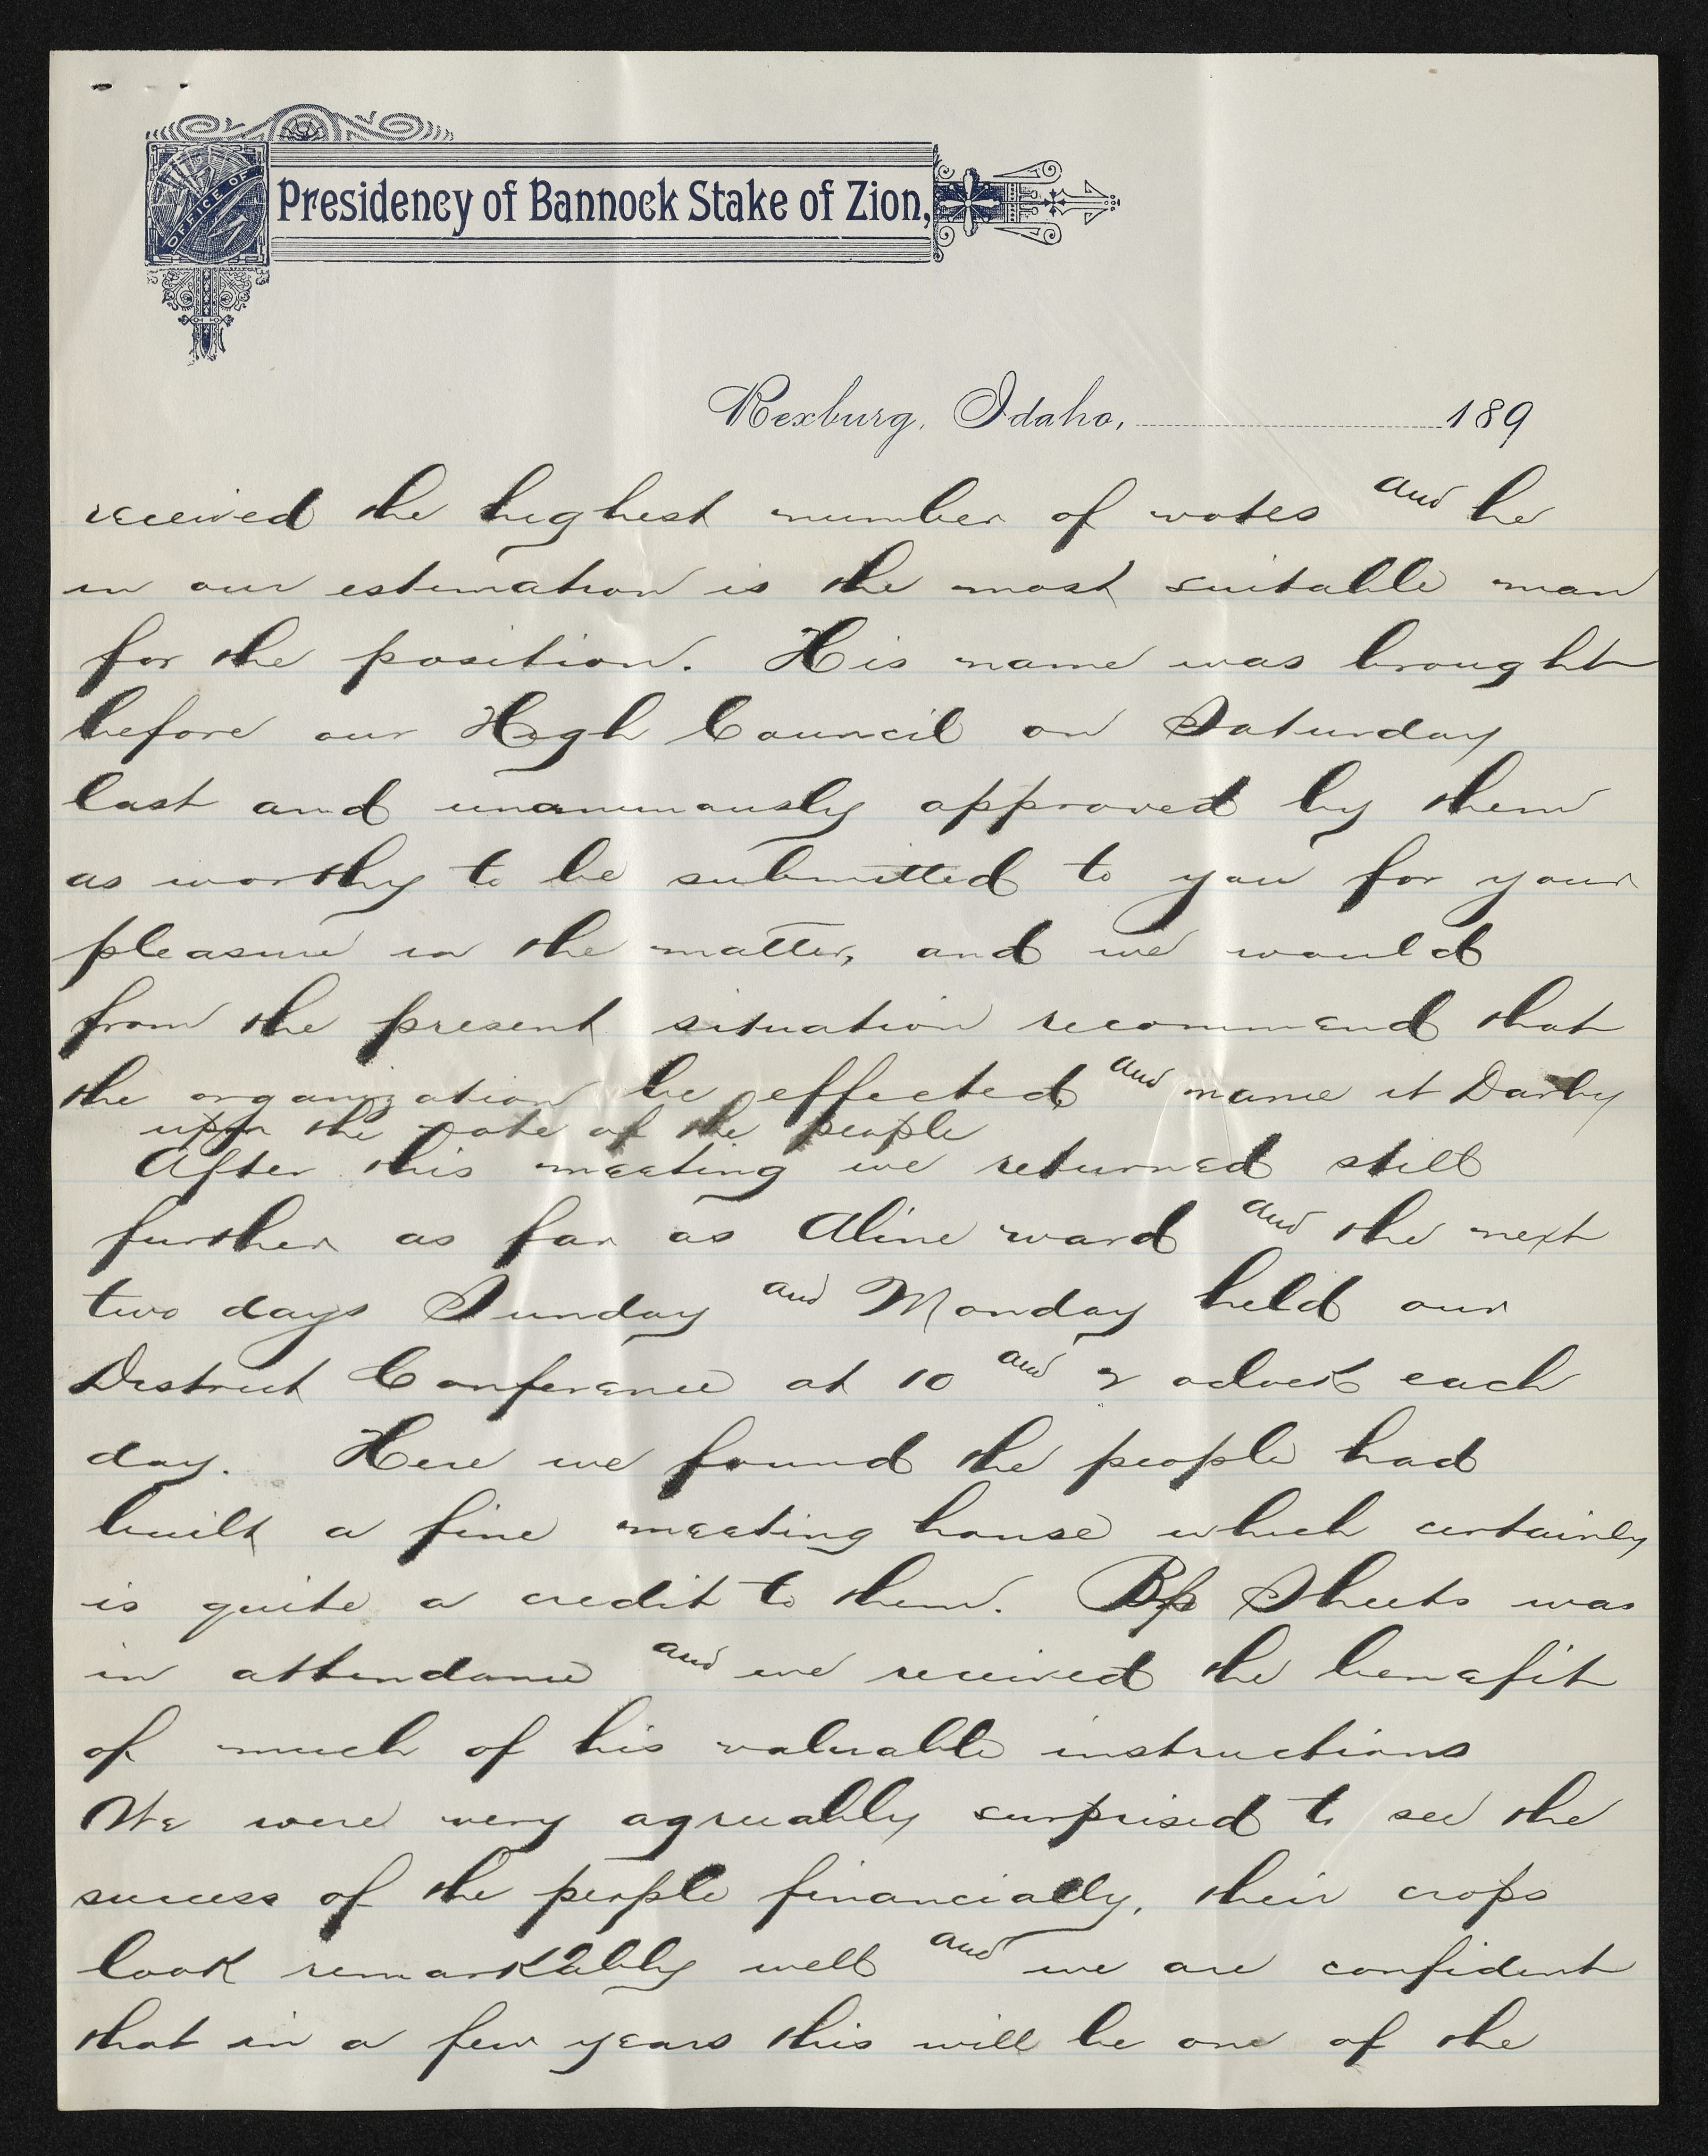 OFFICE OF
Presidency of Bannock Stake of Zion,
Rexburg, Idaho, 189
received the highest number of votes and he
in our estimation is the most suitable man
for the position. His name was brought
before our High Council on Saturday
last and unanimously approved by them
as worthy to be submitted to you for your
pleasure in the matter, and we would
from the present situation recommend that
the organization be effected and name it Darby
upon the vote of the people
After this meeting we returned still
further as far as Aline ward and the next
two days Sunday and Monday held our
District Conference at 10 and 2 oclock each
day. Here we found the people had
built a fine meeting house which certainly
is quite a credit to them. Bp Sheets was
in attendance and we received the benefit
of much of his valuable instructions
We were very agreeably surprised to see the
success of the people financially, their crops
look remarkably well and we are confident
that in a few years this will be one of the